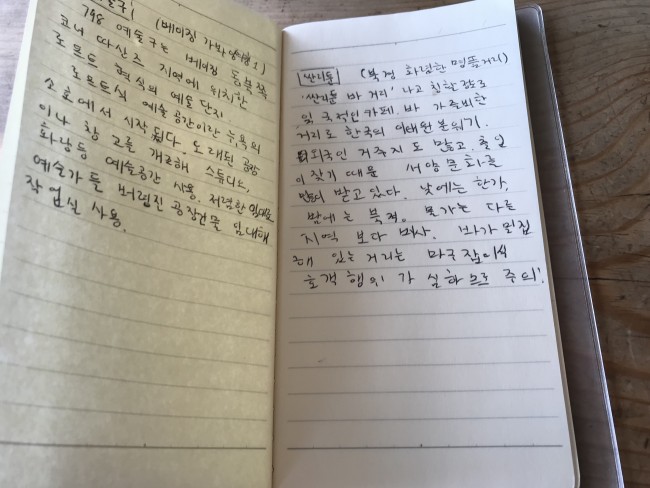 (베이징 가봐야할곳 1)
798 예술구는 베이징 동북쪽
따산즈 지역에 위치한
로프트 형식의 예술 단지.
로프트식 예술공간이란 뉴욕의
소호에서 시작됐다. 오래된 공장
이나 창고를 개조해 스튜디오,
화랑등 예술공간 사용. 저렴한 임대료
예술가들 버려진 공장건물 임대해
작업실 사용.
싼리툰 (북경 화려한 명품거리)
'싼리툰 바 거리' 라고 칭할 정도로
이국적인 카페. 바 가 즐비한
거리로 한국의 이태원 분위기.
외국인 거주지도 많고. 출입
이 잦기 때문 서양문화를
많이 받고 있다. 낮에는 한가,
밤에는 북적. 물가는 다른
지역 보다 비싸. 바가 밀집
해 있는 거리는
호객 행위 가 심하므로 주의!